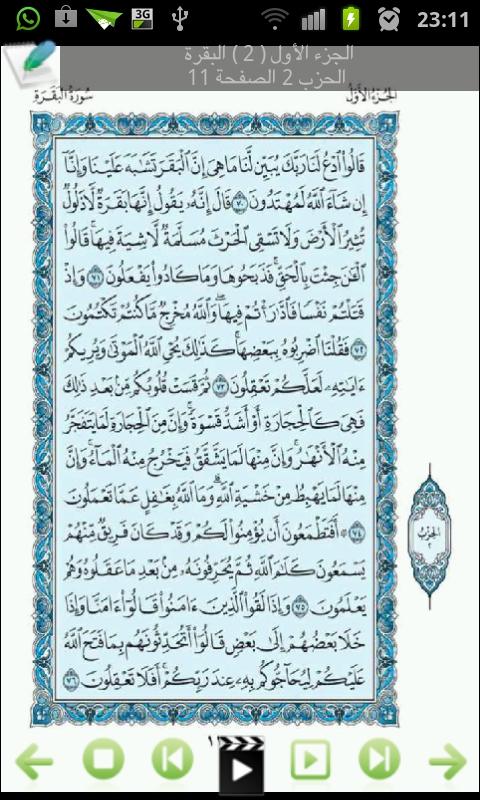 3G
23:11
الجزء الأول ( 2 ) البقرة
الحزب 2 الصفحة 11
سُورَةُ البَقَرَةِ
الجُزْءُ الأَوَّلُ
قَالُوا۟ ٱدْعُ لَنَا رَبَّكَ يُبَيِّن لَّنَا مَا هِىَ إِنَّ ٱلْبَقَرَ تَشَٰبَهَ عَلَيْنَا وَإِنَّآ
إِن شَآءَ ٱللَّهُ لَمُهْتَدُونَ ٧٠ قَالَ إِنَّهُۥ يَقُولُ إِنَّهَا بَقَرَةٌ لَّا ذَلُولٌ
تُثِيرُ ٱلْأَرْضَ وَلَا تَسْقِى ٱلْحَرْثَ مُسَلَّمَةٌ لَّا شِيَةَ فِيهَا ۚ قَالُوا۟
ٱلْـَٰٔنَ جِئْتَ بِٱلْحَقِّ ۚ فَذَبَحُوهَا وَمَا كَادُوا۟ يَفْعَلُونَ ٧١ وَإِذْ
قَتَلْتُمْ نَفْسًا فَٱدَّٰرَْٰٔتُمْ فِيهَا ۖ وَٱللَّهُ مُخْرِجٌ مَّا كُنتُمْ تَكْتُمُونَ
٧٢ فَقُلْنَا ٱضْرِبُوهُ بِبَعْضِهَا ۚ كَذَٰلِكَ يُحْىِ ٱللَّهُ ٱلْمَوْتَىٰ وَيُرِيكُمْ
ءَايَٰتِهِۦ لَعَلَّكُمْ تَعْقِلُونَ ٧٣ ثُمَّ قَسَتْ قُلُوبُكُم مِّنۢ بَعْدِ ذَٰلِكَ
فَهِىَ كَٱلْحِجَارَةِ أَوْ أَشَدُّ قَسْوَةً ۚ وَإِنَّ مِنَ ٱلْحِجَارَةِ لَمَا يَتَفَجَّرُ
مِنْهُ ٱلْأَنْهَٰرُ ۚ وَإِنَّ مِنْهَا لَمَا يَشَّقَّقُ فَيَخْرُجُ مِنْهُ ٱلْمَآءُ ۚ وَإِنَّ
مِنْهَا لَمَا يَهْبِطُ مِنْ خَشْيَةِ ٱللَّهِ ۗ وَمَا ٱللَّهُ بِغَٰفِلٍ عَمَّا تَعْمَلُونَ
٧٤ ۞ أَفَتَطْمَعُونَ أَن يُؤْمِنُوا۟ لَكُمْ وَقَدْ كَانَ فَرِيقٌ مِّنْهُمْ
يَسْمَعُونَ كَلَٰمَ ٱللَّهِ ثُمَّ يُحَرِّفُونَهُۥ مِنۢ بَعْدِ مَا عَقَلُوهُ وَهُمْ
يَعْلَمُونَ ٧٥ وَإِذَا لَقُوا۟ ٱلَّذِينَ ءَامَنُوا۟ قَالُوٓا۟ ءَامَنَّا وَإِذَا
خَلَا بَعْضُهُمْ إِلَىٰ بَعْضٍ قَالُوٓا۟ أَتُحَدِّثُونَهُم بِمَا فَتَحَ ٱللَّهُ
عَلَيْكُمْ لِيُحَآجُّوكُم بِهِۦ عِندَ رَبِّكُمْ ۚ أَفَلَا تَعْقِلُونَ ٧٦
الحِزْبُ
٢